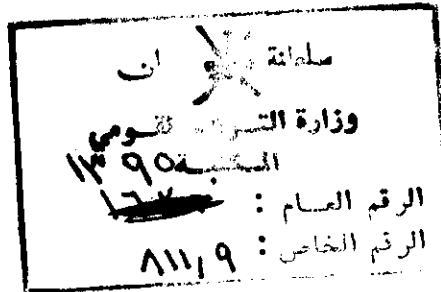 سلطانة ان
وزارة التـراث القـومي
المكتبـة ١٣٩٥
الرقم العـام :
الرقم الخاص : ٨١١,٩